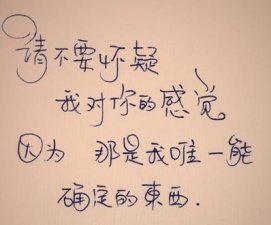 请不要怀疑
我对你的感觉
因为 那是我唯一能
确定的東西.